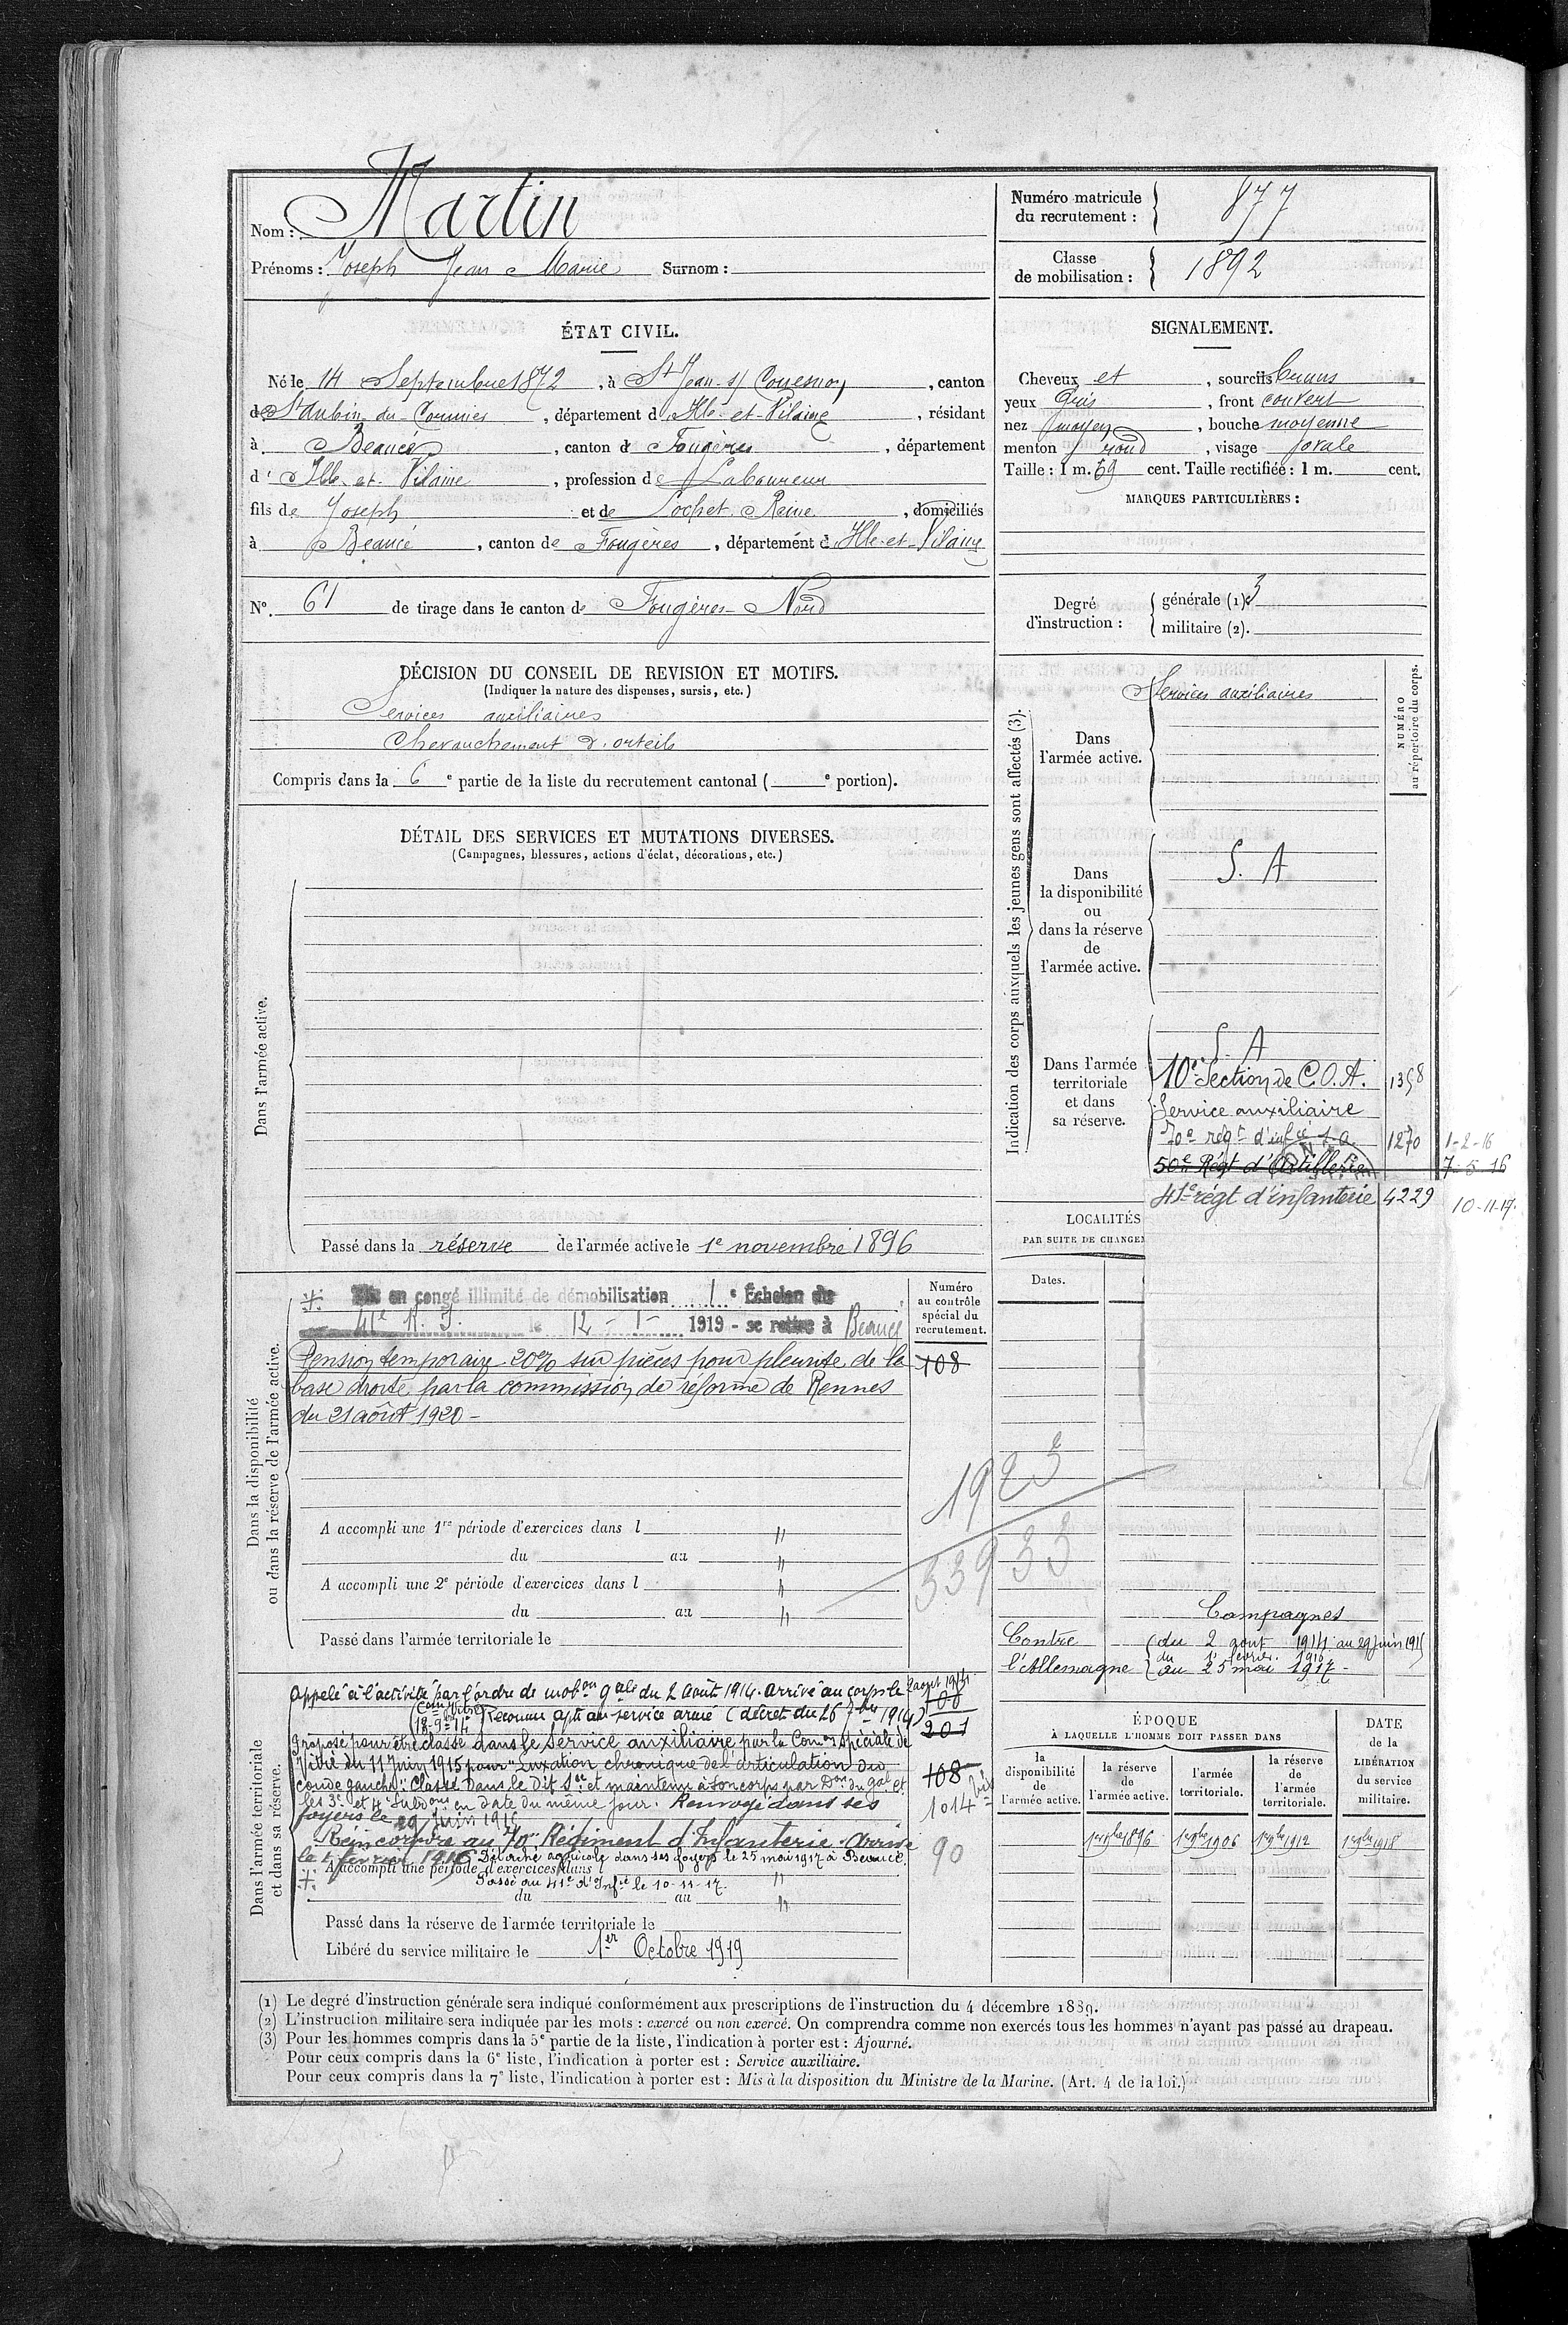 Nom : Martin
Prénoms : Joseph Jean Marie Surnom :
Numéro matricule du recrutement : 877
Classe de mobilisation : 1892
ÉTAT CIVIL.
Né le 14 Septembre 1872, à St Jean s/ Couesnon, canton
de St Aubin du Cormier, département d'Ille-et-Vilaine, résidant
à Beaucé, canton de Fougères, département
d'Ille-et-Vilaine, profession de Laboureur
fils de Joseph et de Lochet Reine, domiciliés
à Beaucé, canton de Fougères, département d'Ille-et-Vilaine
N° 61 de tirage dans le canton de Fougères-Nord
SIGNALEMENT.
Cheveux et, sourcils bruns
yeux Gris, front couvert
nez moyen, bouche moyenne
menton rond, visage ovale
Taille : 1 m. 69 cent. Taille rectifiée : 1 m. cent.
MARQUES PARTICULIÈRES :
Degré d'instruction : générale (1) 3
militaire (2).
DÉCISION DU CONSEIL DE REVISION ET MOTIFS.
(Indiquer la nature des dispenses, sursis, etc.)
Services auxiliaires
Chevauchement d'orteils
Compris dans la 6e partie de la liste du recrutement cantonal ( e portion).
DÉTAIL DES SERVICES ET MUTATIONS DIVERSES.
(Campagnes, blessures, actions d'éclat, décorations, etc.)
Dans l'armée active.
Passé dans la réserve de l'armée active le 1e novembre 1896
Indication des corps auxquels les jeunes gens sont affectés (3).
NUMÉRO au répertoire du corps.
Dans l'armée active.
Services auxiliaires
Dans la disponibilité ou dans la réserve de l'armée active.
S. A
Dans l'armée territoriale et dans sa réserve.
S. A
10e Section de C.O.A. 1358
Service auxiliaire
70e régt d'infie s.a. 1270 1-2-16
50e Régt d'Artillerie 7-5-16
41e régt d'infanterie 4229 10-11-17.
LOCALITÉS
PAR SUITE DE CHANGE
Dates.
Dans la disponibilité ou dans la réserve de l'armée active.
Numéro au contrôle spécial du recrutement.
Mis en congé illimité de démobilisation 1e Échelon du
41e R.I. le 12-1-1919 - se retire à Beaucé
Pension temporaire 20% sur pièces pour pleurite de la
base droite par la commission de réforme de Rennes
du 21 août 1920 -
108
1923
33933
A accompli une 1re période d'exercices dans l "
du au "
A accompli une 2e période d'exercices dans l "
du au "
Passé dans l'armée territoriale le
Campagnes
Contre l'Allemagne
du 2 aout 1914 au 29 juin 1915
du 1 fevrier 1916
au 25 mai 1917 -
Dans l'armée territoriale et dans sa réserve.
Appelé à l'activité par l'ordre de mobon gale du 2 Août 1914. Arrivé au corps le 2 aout 1914
18-9-14 Reconnu apte au service armé (décret du 26 7bre 1914)
Proposé pour être classé dans le Service auxiliaire par la Comon Spéciale de
Vitré du 11 Juin 1915 pour "Luxation chronique de l'articulation du
coude gauche". Classé dans le dit Sce et maintenu à son corps par Don du Gal et
les 3e et 4e Subdons en date du même jour. Renvoyé dans ses
foyers le 29 Juin 1915
Réincorporé au 70e Régiment d'Infanterie. Arrivé
le 1 février 1916 Détaché agricole dans ses foyers le 25 mai 1917 à Beaucé.
A accompli une période d'exercices dans l "
Passé au 41e d'Infie le 10-11-17.
du au "
201
108
1014 bis
90
Passé dans la réserve de l'armée territoriale le
Libéré du service militaire le 1er Octobre 1919
ÉPOQUE
À LAQUELLE L'HOMME DOIT PASSER DANS
la disponibilité de l'armée active.
la réserve de l'armée active.
l'armée territoriale.
la réserve de l'armée territoriale.
DATE de la LIBÉRATION du service militaire.
1er 9bre 1896 1er 9bre 1906 1er 9bre 1912 1er 9bre 1918
(1) Le degré d'instruction générale sera indiqué conformément aux prescriptions de l'instruction du 4 décembre 1889.
(2) L'instruction militaire sera indiquée par les mots : exercé ou non exercé. On comprendra comme non exercés tous les hommes n'ayant pas passé au drapeau.
(3) Pour les hommes compris dans la 5e partie de la liste, l'indication à porter est : Ajourné.
Pour ceux compris dans la 6e liste, l'indication à porter est : Service auxiliaire.
Pour ceux compris dans la 7e liste, l'indication à porter est : Mis à la disposition du Ministre de la Marine. (Art. 4 de la loi.)